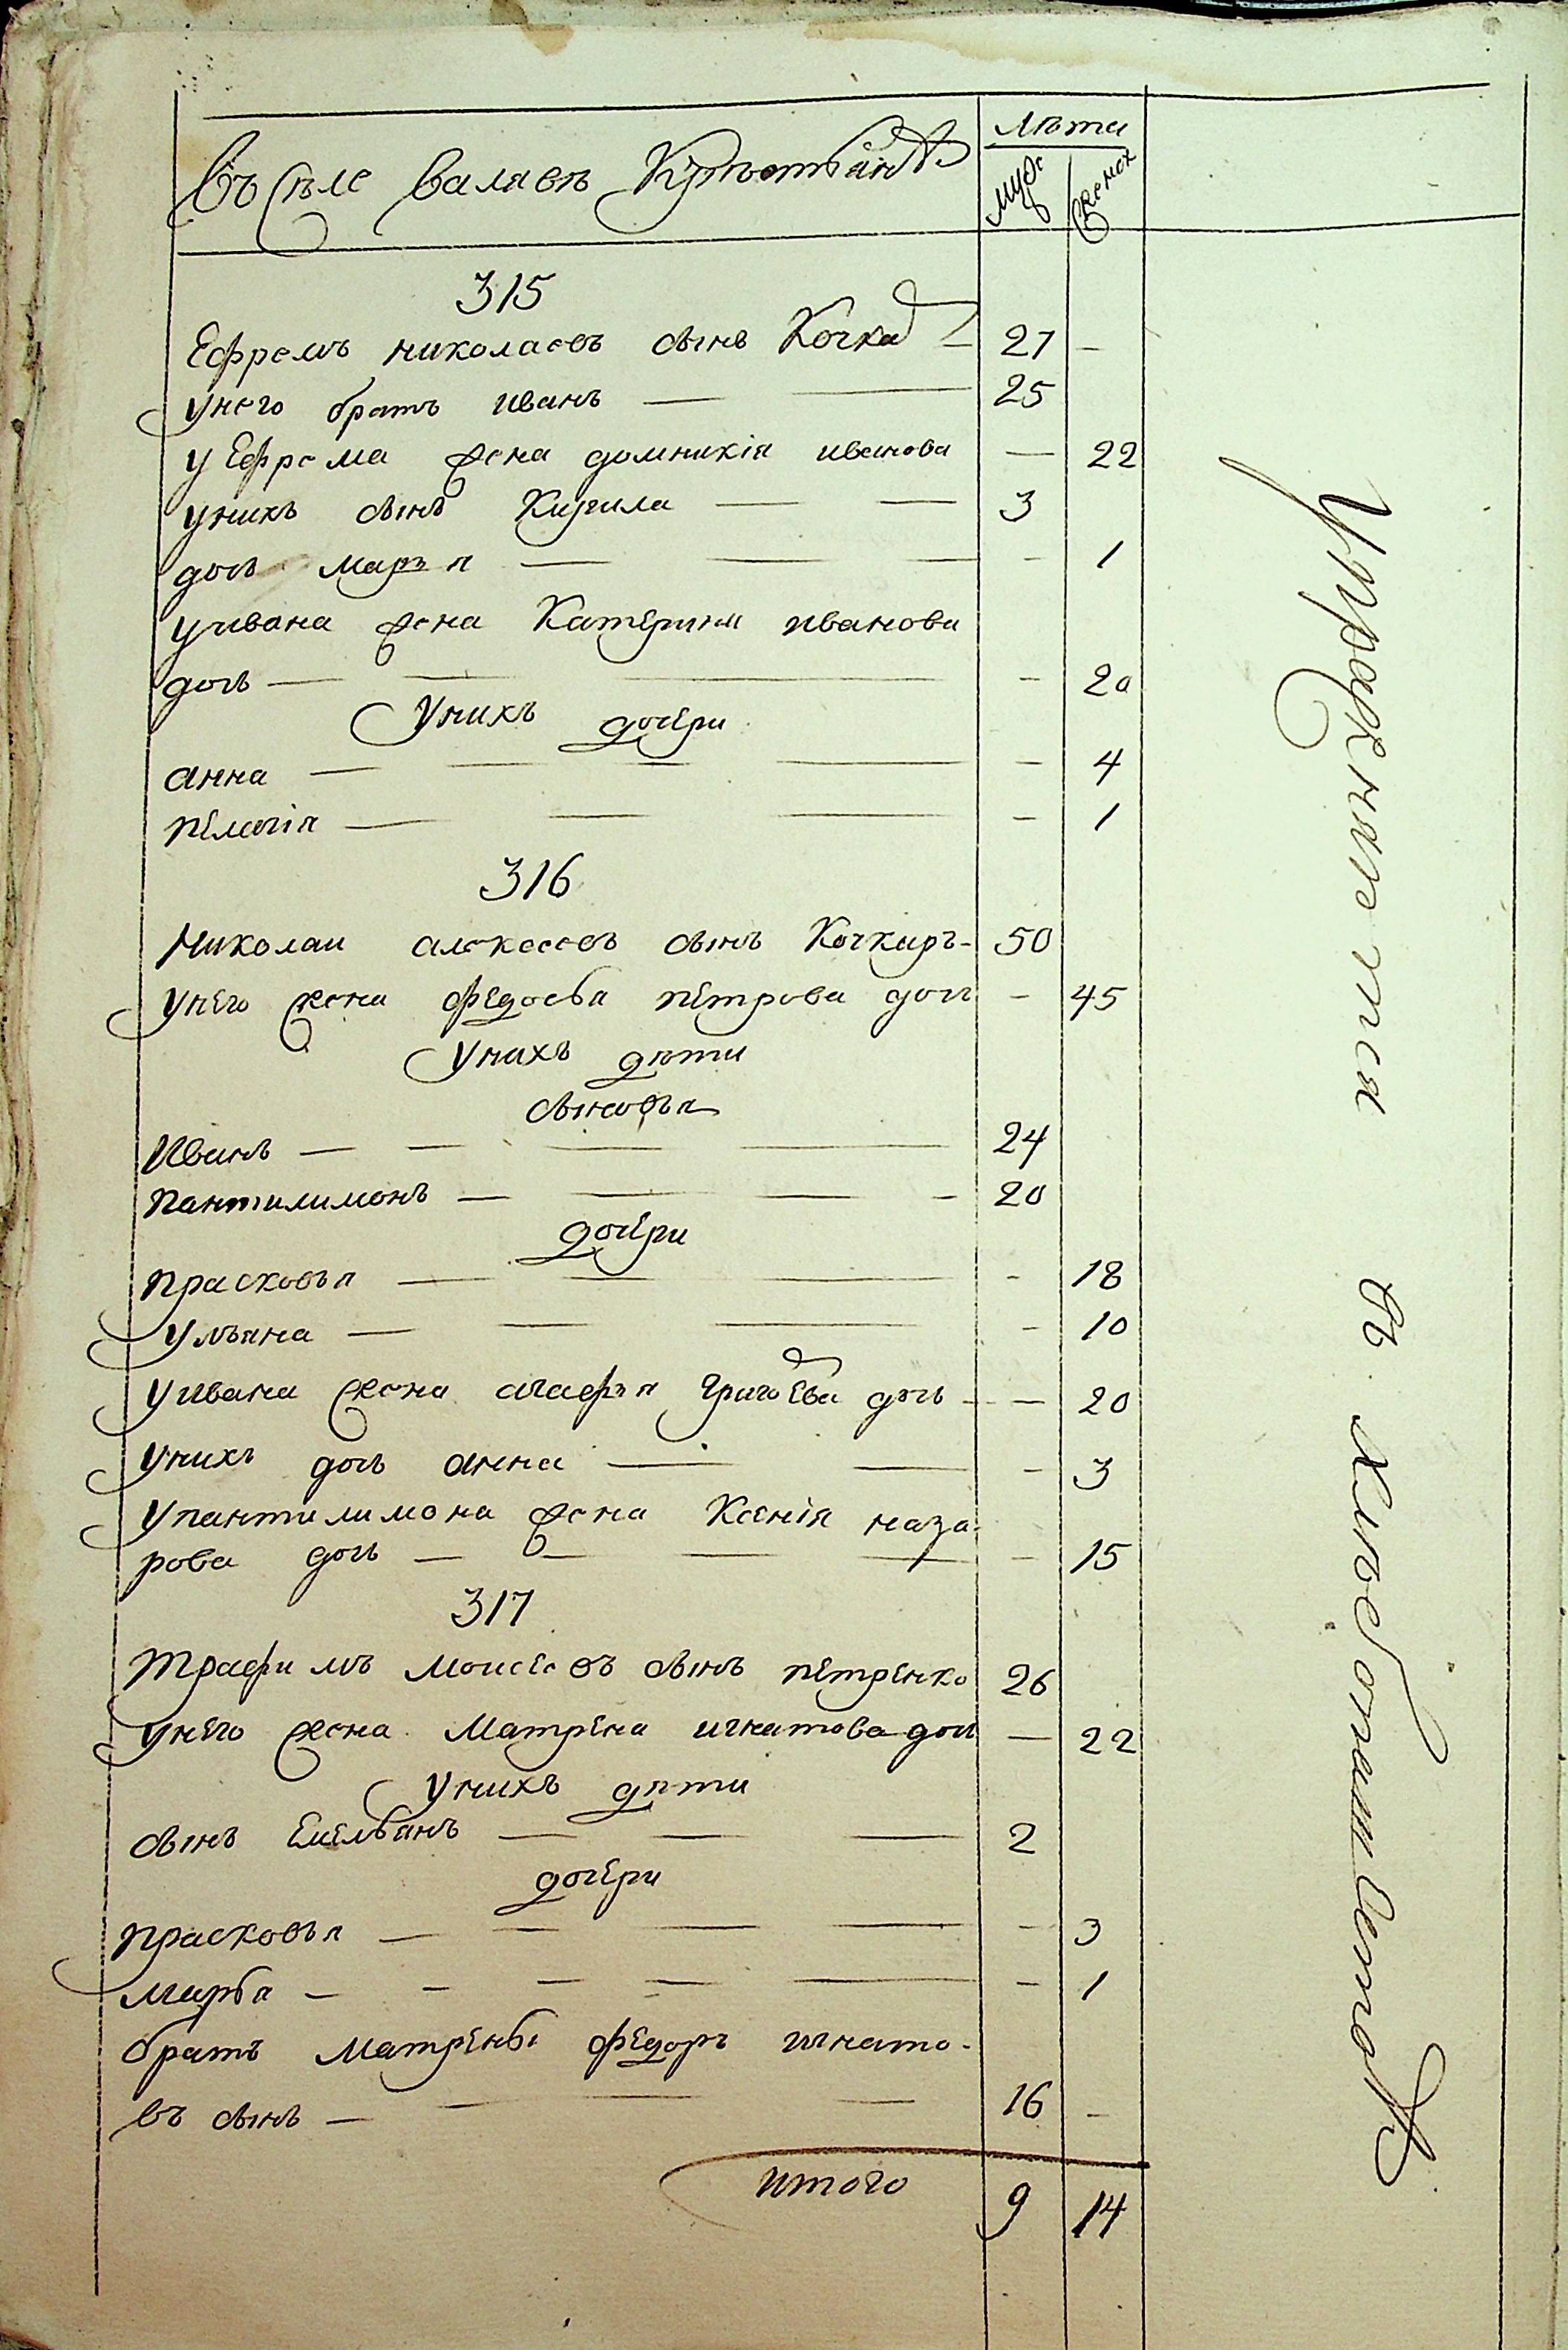 Въ селе валявъ Крестьянъ
Лета
муж
женск
315
Ефремъ николаевъ сынъ Кочка 27 —
Унего братъ иванъ — — 25
У Ефрема жена домникія иванова — 22
Унихъ сынъ Кирила — — 3
дочь марья — — — — 1
Уивана жена Катерина иванова
дочь — — — — 20
Унихъ дочери
анна — — — — — 4
пелагія — — — — 1
316
Николаи алексеевъ сынъ Кочкиръ - 50
Унего жена федосья петрова дочь — 45
Унихъ дѣти
сыновья
Иванъ — — — — 24
пантилимонъ — — — — 20
дочери
прасковья — — — — 18
Ульяна — — — — 10
Уивана жена агафья Григоева дочь — — 20
Унихъ дочь анна — — — 3
Упантилимона жена Ксенія наза-
рова дочь — — — — — 15
317
трафимъ Моисеевъ сынъ петренко 26
Унего жена Матрена игнатова дочь — 22
Унихъ дѣти
сынъ Емельянъ — — — 2
дочери
прасковья — — — — — 3
марья — — — — — — 1
братъ Матрены федоръ игнато-
въ сынъ — — — — 16 —
итого 9 14
Упражняется въ хлебопашестве